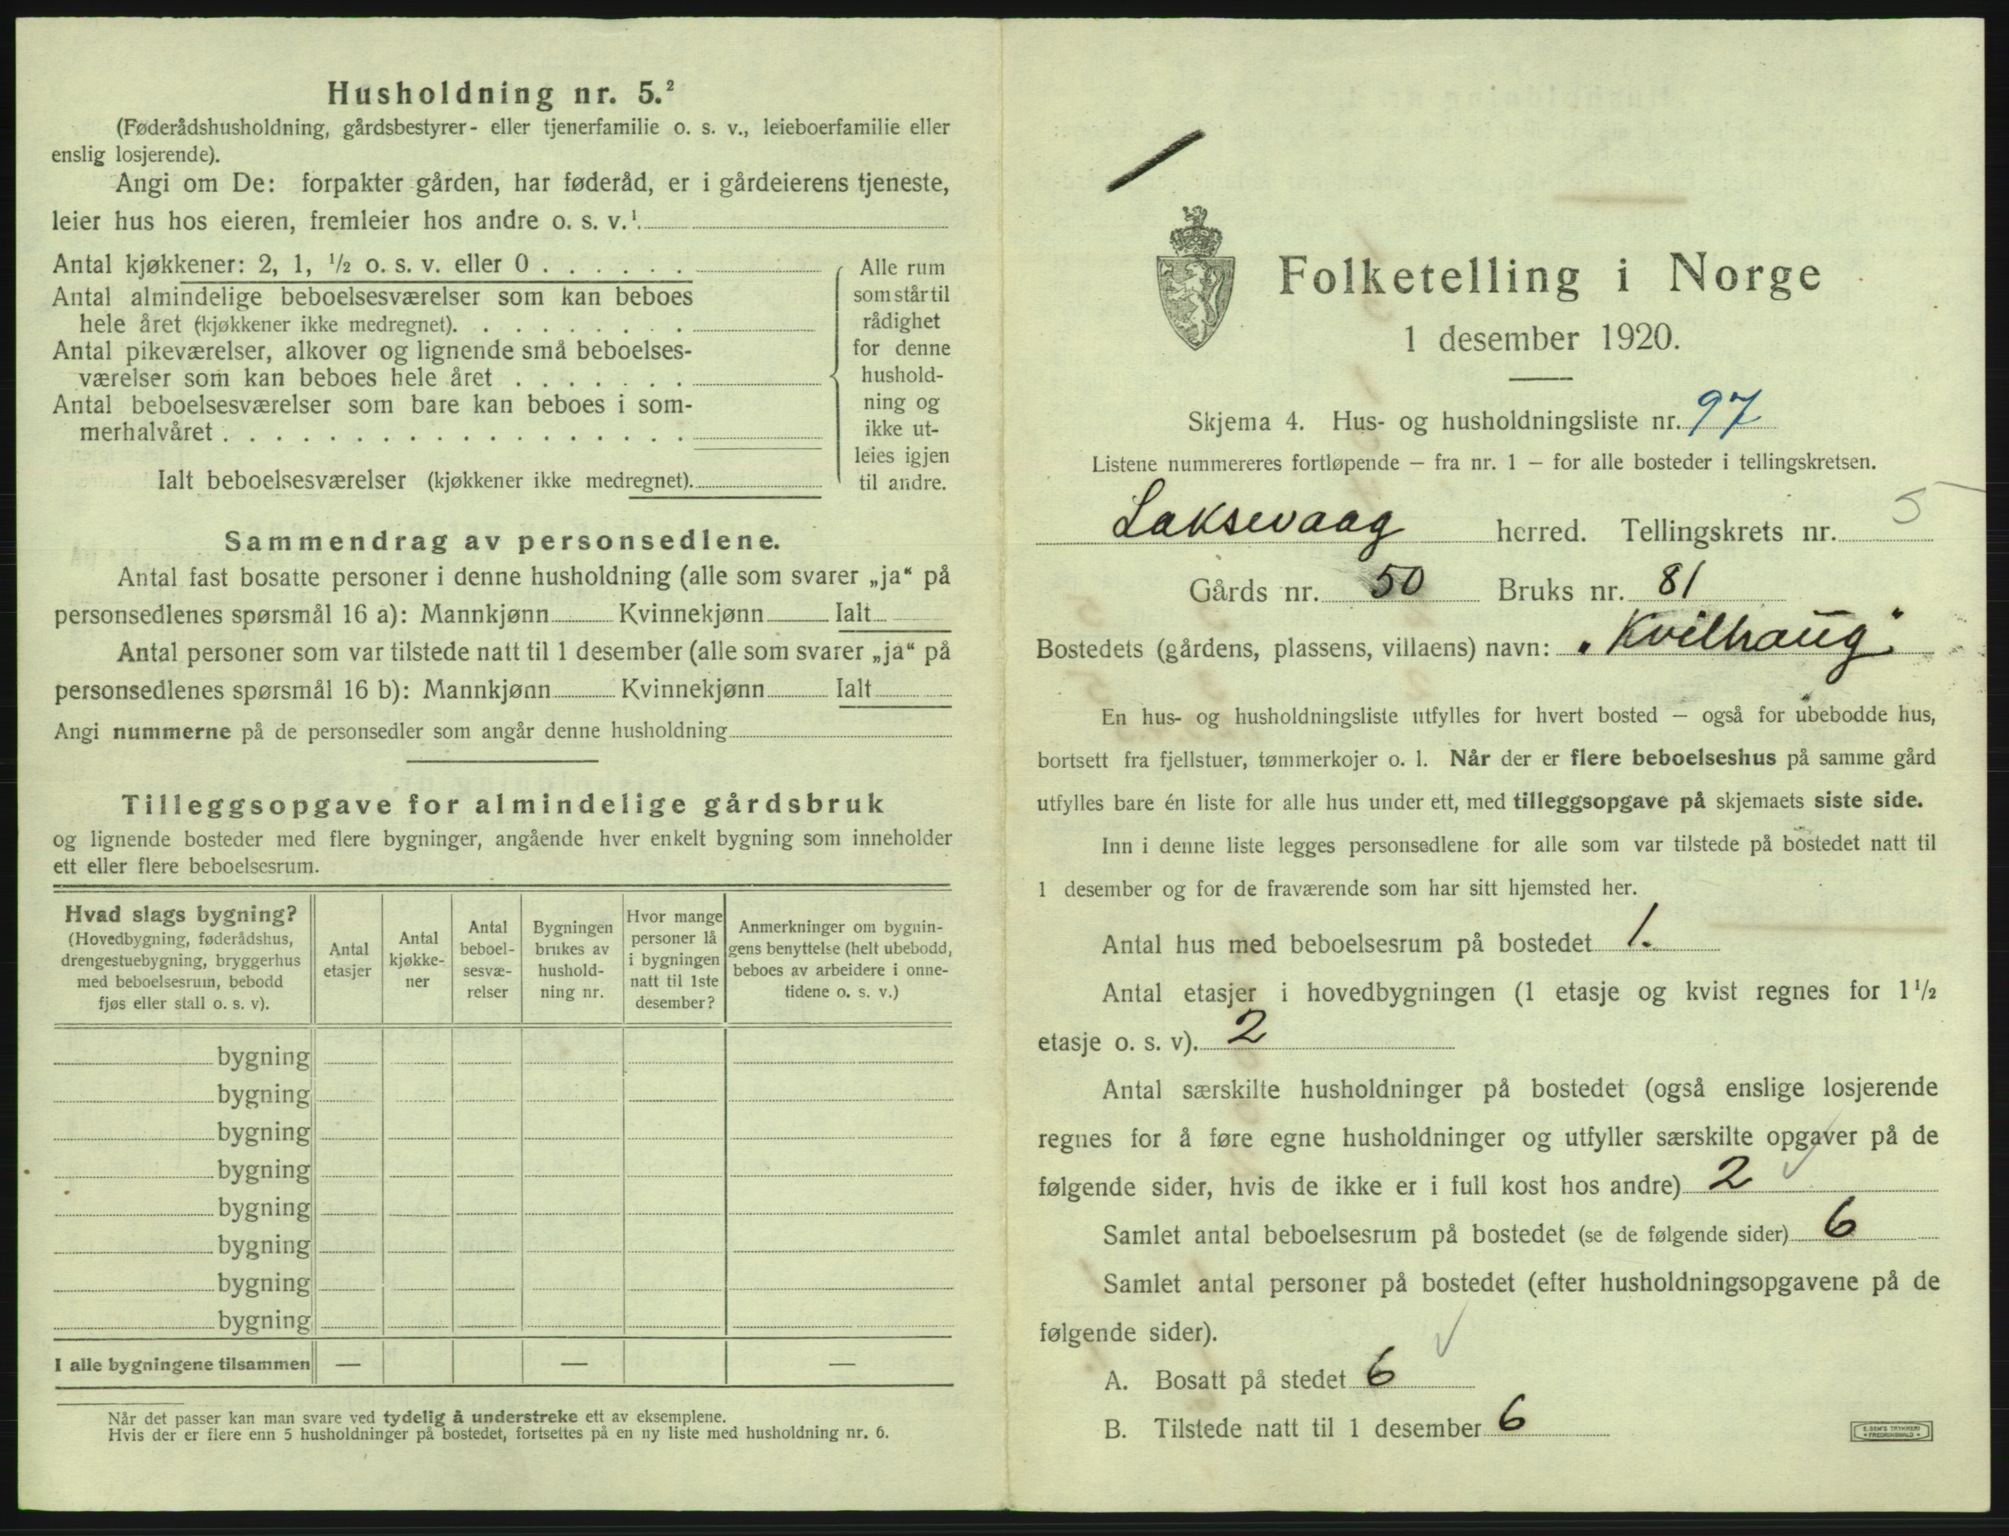 Husholdning nr. 5.²
(Føderådshusholdning, gårdsbestyrer- eller tjenerfamilie o. s. v., leieboerfamilie eller
enslig losjerende).
Angi om De: forpakter gården, har føderåd, er i gårdeierens tjeneste,
leier hus hos eieren, fremleier hos andre o. s. v.¹
Antal kjøkkener: 2, 1, ½ o. s. v. eller 0 . . . . . .
Antal almindelige beboelsesværelser som kan beboes
hele året (kjøkkener ikke medregnet). . . . . . . . .
Antal pikeværelser, alkover og lignende små beboelses-
værelser som kan beboes hele året . . . . . . .
Antal beboelsesværelser som bare kan beboes i som-
merhalvåret . . . . . . . . . . . . . . . . . .
Ialt beboelsesværelser (kjøkkener ikke medregnet).
Alle rum
som står til
rådighet
for denne
hushold-
ning og
ikke ut-
leies igjen
til andre.
Sammendrag av personsedlene.
Antal fast bosatte personer i denne husholdning (alle som svarer „ja“ på
personsedlenes spørsmål 16 a): Mannkjønn Kvinnekjønn Ialt
Antal personer som var tilstede natt til 1 desember (alle som svarer „ja“ på
personsedlenes spørsmål 16 b): Mannkjønn Kvinnekjønn Ialt
Angi nummerne på de personsedler som angår denne husholdning
Tilleggsopgave for almindelige gårdsbruk
og lignende bosteder med flere bygninger, angående hver enkelt bygning som inneholder
ett eller flere beboelsesrum.
Hvad slags bygning?
(Hovedbygning, føderådshus,
drengestuebygning, bryggerhus
med beboelsesrum, bebodd
fjøs eller stall o. s. v).
Antal
etasjer
Antal
kjøkke-
ner
Antal
beboel-
sesvæ-
relser
Bygningen
brukes av
hushold-
ning nr.
Hvor mange
personer lå
i bygningen
natt til 1ste
desember?
Anmerkninger om bygnin-
gens benyttelse (helt ubebodd,
beboes av arbeidere i onne-
tidene o. s. v.)
bygning
bygning
bygning
bygning
bygning
bygning
bygning
bygning
I alle bygningene tilsammen — — —
Når det passer kan man svare ved tydelig å understreke ett av eksemplene.
Hvis der er flere enn 5 husholdninger på bostedet, fortsettes på en ny liste med husholdning nr. 6.
Folketelling i Norge
1 desember 1920.
Skjema 4. Hus- og husholdningsliste nr. 97
Listene nummereres fortløpende — fra nr. 1 — for alle bosteder i tellingskretsen.
Laksevaag herred. Tellingskrets nr. 5
Gårds nr. 50 Bruks nr. 81
Bostedets (gårdens, plassens, villaens) navn: "Kvilhaug"
En hus- og husholdningsliste utfylles for hvert bosted — også for ubebodde hus,
bortsett fra fjellstuer, tømmerkojer o. l. Når der er flere beboelseshus på samme gård
utfylles bare én liste for alle hus under ett, med tilleggsopgave på skjemaets siste side.
Inn i denne liste legges personsedlene for alle som var tilstede på bostedet natt til
1 desember og for de fraværende som har sitt hjemsted her.
Antal hus med beboelsesrum på bostedet 1.
Antal etasjer i hovedbygningen (1 etasje og kvist regnes for 1½
etasje o. s. v). 2
Antal særskilte husholdninger på bostedet (også enslige losjerende
regnes for å føre egne husholdninger og utfyller særskilte opgaver på de
følgende sider, hvis de ikke er i full kost hos andre) 2 ✓
Samlet antal beboelsesrum på bostedet (se de følgende sider) 6
Samlet antal personer på bostedet (efter husholdningsopgavene på de
følgende sider). ✓
A. Bosatt på stedet 6
B. Tilstede natt til 1 desember 6
E. SEM'S TRYKKERI
FREDRIKSHALD